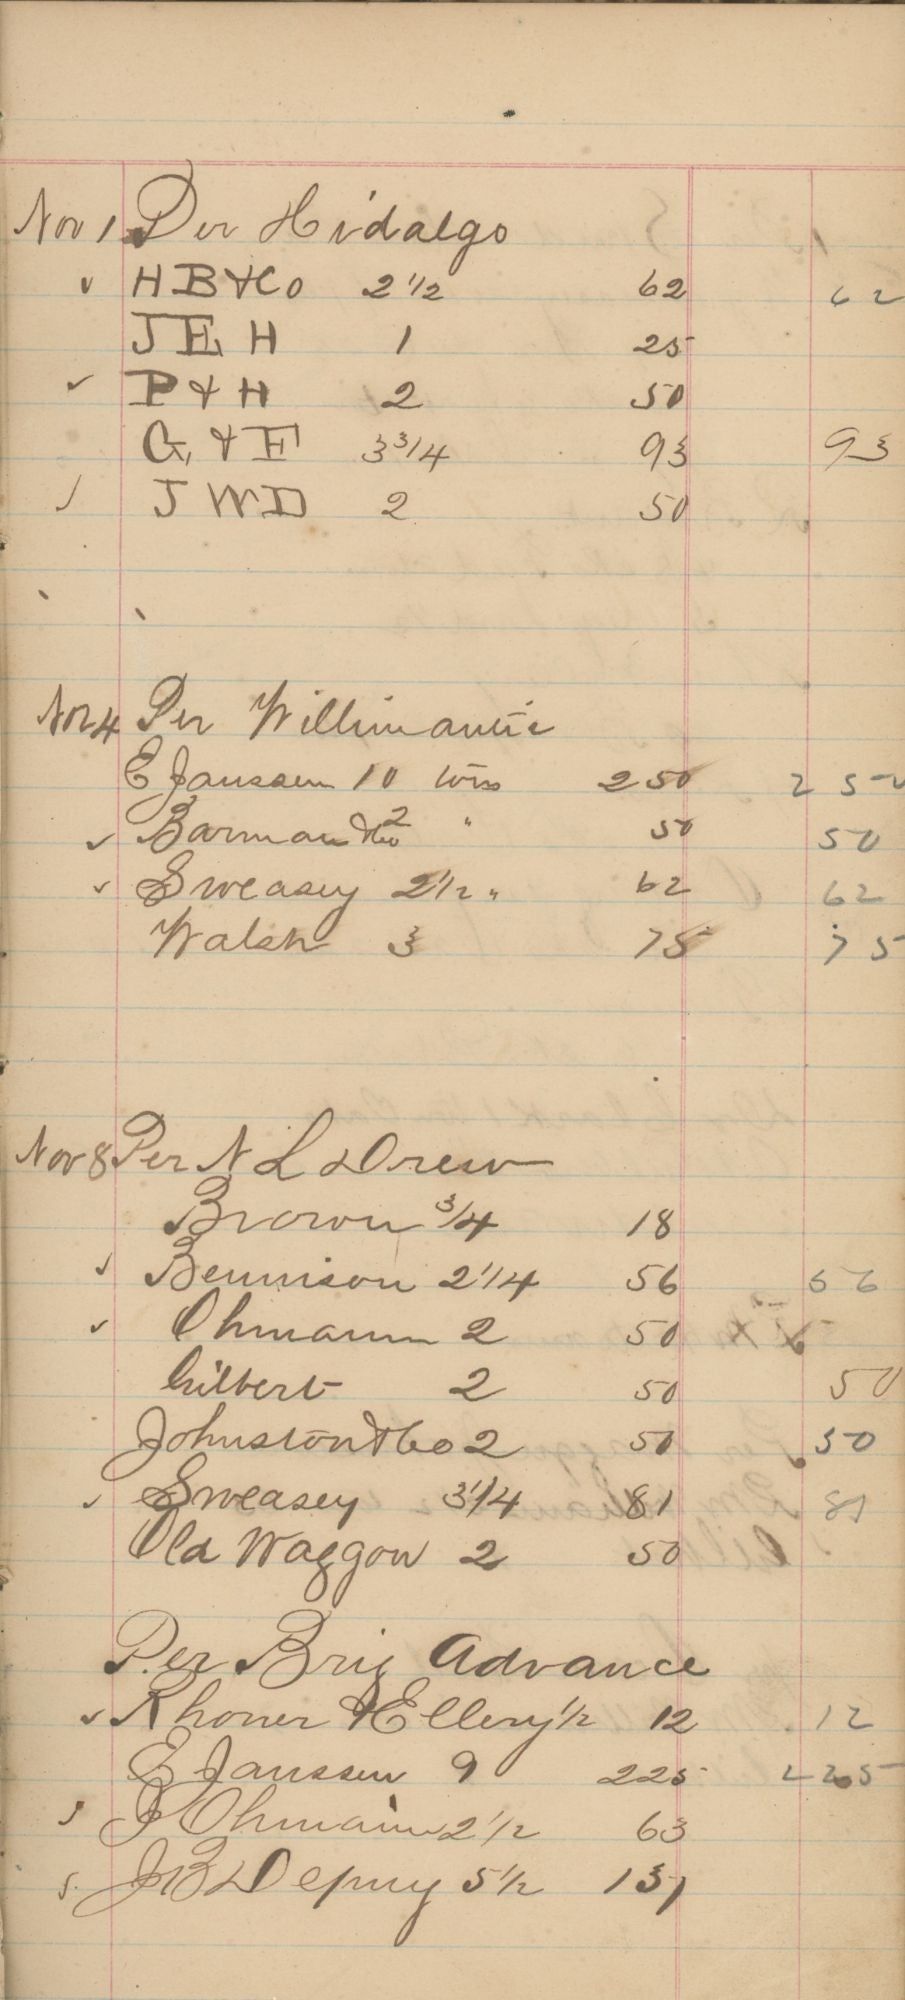 Nov 1 Per Hidalgo
✓ H B & Co 2 1/2 62 62
J E H 1 25
✓ P & H 2 50
G & F 3 3/4 93 93
✓ J W D 2 50
Nov 4 Per Willimantic
E Janssen 10 tons 250 250
✓ Barman & Co 2 " 50 50
✓ Sweasey 2 1/2 " 62 62
Walsh 3 75 75
Nov 8 Per N L Drew
Brown 3/4 18
✓ Bennison 2 1/4 56 56
✓ Ohmann 2 50
Gilbert 2 50 50
Johnston & Co 2 50 50
✓ Sweasey 3 1/4 81 81
Old Waggon 2 50
Per Brig Advance
✓ Rhoner & Ellery 1/2 12 12
E Janssen 9 225 225
✓ J Ohmann 2 1/2 63
✓ J B Depuy 5 1/2 137